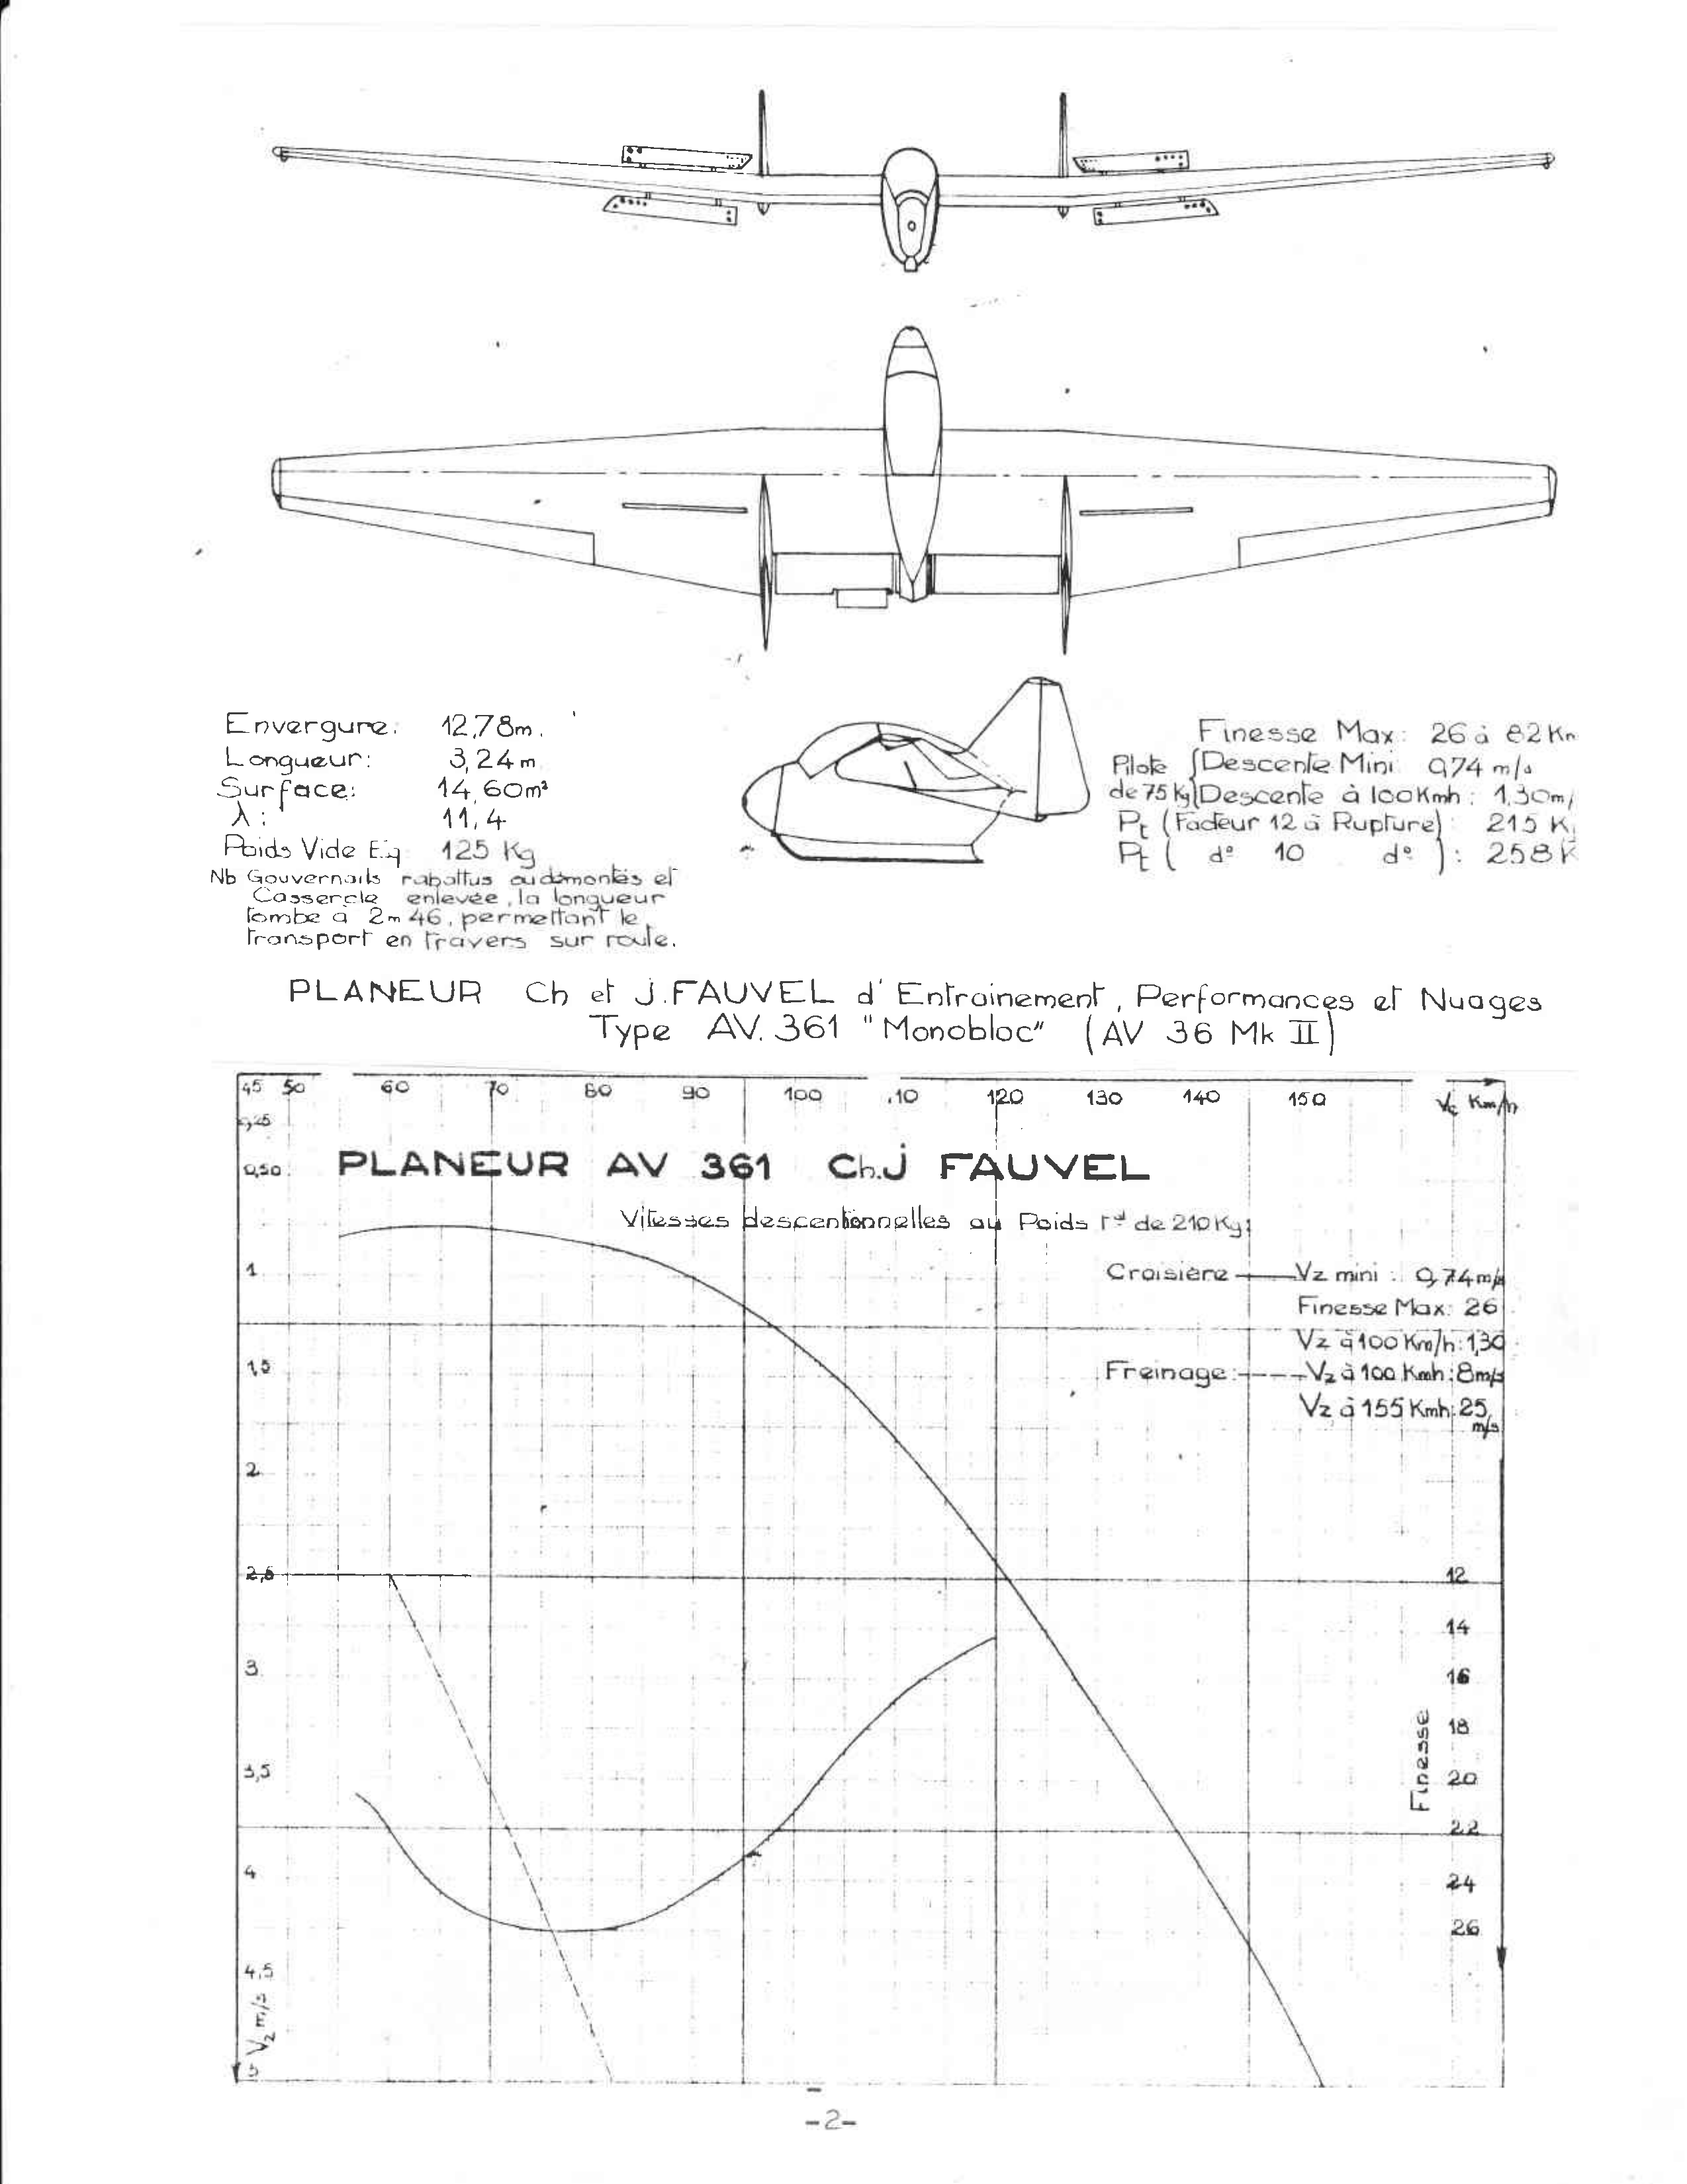 Envergure: 12,78m.
Longueur: 3,24m
Surface: 14,60m²
λ: 11,4
Poids Vide Eq 125 Kg
Nb Gouvernails rabattus ou démontés et
Casserole enlevée, la longueur
tombe à 2m46, permettant le
transport en travers sur route.
Finesse Max: 26 à 82 Km
Pilote de 75 Kg
Descente Mini 0,74 m/s
Descente à 100Kmh: 1,30m/
Pt (Facteur 12 à Rupture): 215 K
Pt ( d° 10 d° ): 258 K
PLANEUR Ch et J.FAUVEL d'Entrainement, Performances et Nuages
Type AV. 361 "Monobloc" (AV 36 Mk II)
45 50 60 70 80 90 100 110 120 130 140 150 Vc Km/h
0,25
0,50
PLANEUR AV 361 Ch.J FAUVEL
Vitesses descentionnelles au Poids tal de 210Kg:
1
Croisière Vz mini: 0,74m/s
Finesse Max: 26
Vz à 100 Km/h: 1,30
1,5
Freinage: Vz à 100 Kmh: 8m/s
Vz à 155 Kmh: 25 m/s
2
2,5
12
14
3
16
18
3,5
20
22
4
24
26
4,5
5
Vz m/s
Finesse
-2-